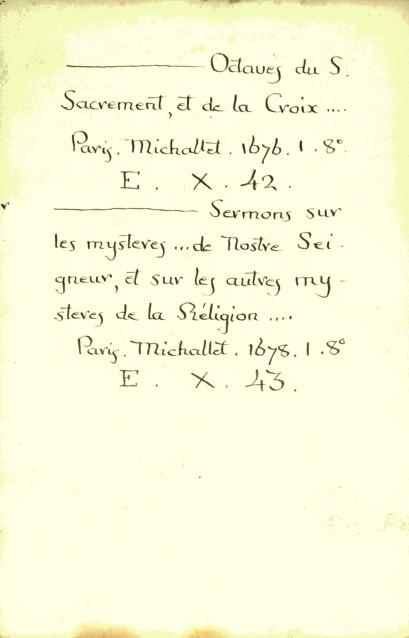 ——— Octaves du S.
Sacrement, et de la Croix ....
Paris. Michallet. 1676. 1. 8°.
E. X. 42.
——— Sermons sur
les mysteres ... de Nostre Sei-
gneur, et sur les autres my-
steres de la Réligion ....
Paris. Michallet. 1678. 1. 8°
E. X. 43.